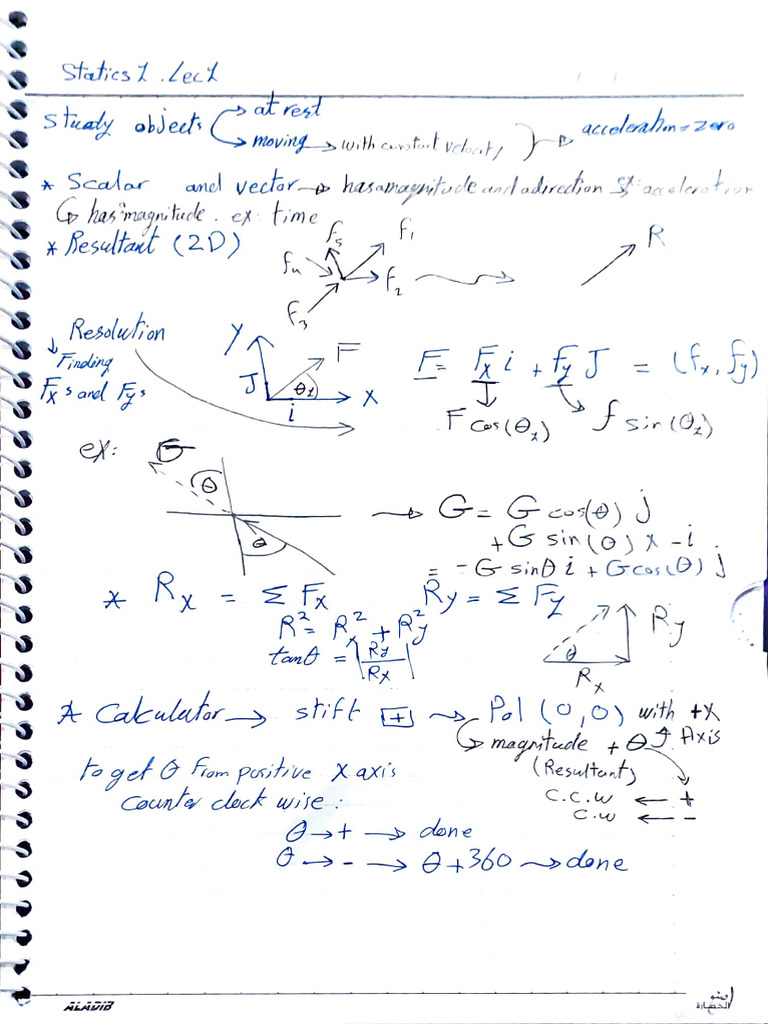 Statics 1 . Lec 1
Study objects → at rest
→ moving → with constant velocity } → acceleration = zero
* Scalar and vector → has a magnitude and a direction ex: acceleration
↳ has magnitude . ex: time
* Resultant (2D) f5 f1 f4 f2 f3 R
Resolution
↓ Finding
Fxs and Fys
y J F θx i x
F = Fx i + fy J = (fx, fy)
F cos(θx) f sin(θx)
ex: G θ θ → G = G cos(θ) j
+ G sin(θ) x - i
= - G sinθ i + G cos(θ) j
* Rx = Σ Fx Ry = Σ Fy
R² = Rx² + Ry²
tanθ = |Ry/Rx|
θ Rx Ry
* Calculator → stift [+] → Pol (0,0) with +X Axis
↳ magnitude + θ
(Resultant)
C.C.W ← +
C.W ← -
to get θ from positive X axis
counter clock wise :
θ → + → done
θ → - → θ + 360 → done
ALADIB